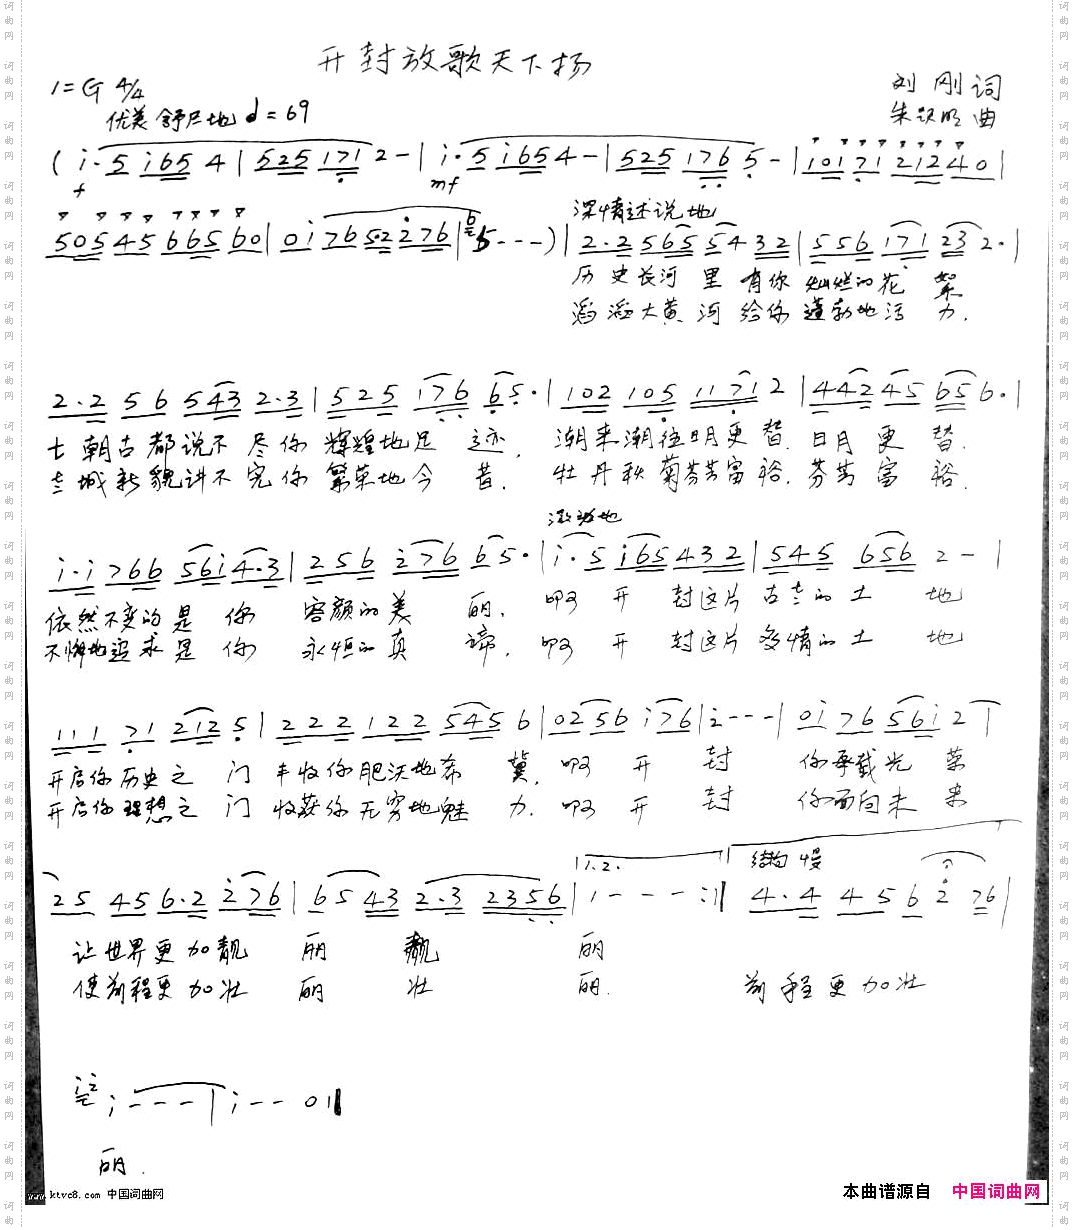 开封放歌天下扬
1=G 4/4
刘刚词
优美 舒展地 d=69
曲
(i·5 i654|525 171 2-|i·5 i654-|525 176 5-|10171 21240|
f mf
505456656 60|0i7652276|5---)|2·2565 5432|556 171 23 2·|
深情述说地
历史长河里有你灿烂的花絮
滔滔大黄河给你蓬勃地活力.
2·2 56 543 2·3|525 176 65·|102 105 1171 2|442 45 65 6·|
七朝古都说不尽你辉煌地足迹, 潮来潮往日月更替.日月更替.
古城新貌讲不完你繁荣地今昔. 牡丹秋菊芬芳富裕.芬芳富裕.
激动地
i·i 766 56i4·3|256 276 65·|i·5 i65432|545 656 2-|
依然不变的是你容颜的美丽. 啊开封这片古老的土地
不悔地追求是你永恒的真谛, 啊开封这片多情的土地
111 71 212 5|222 122 545 6|0256 i76|2---|0i 76 56i 2|
开启你历史之门丰收你肥沃地希冀, 啊开封 你承载光荣
开启你理想之门收获你无穷地魅力. 啊开封 你面向未来
1.2. 结构 慢
25 456·2 276|65 43 2·3 2356|i---:|4·4 456 2 76|
让世界更加靓丽靓丽
使前程更加壮丽壮丽. 前程更加壮
i---|i--0||
丽.
www.ktvc8.com 中国词曲网
本曲谱源自 中国词曲网